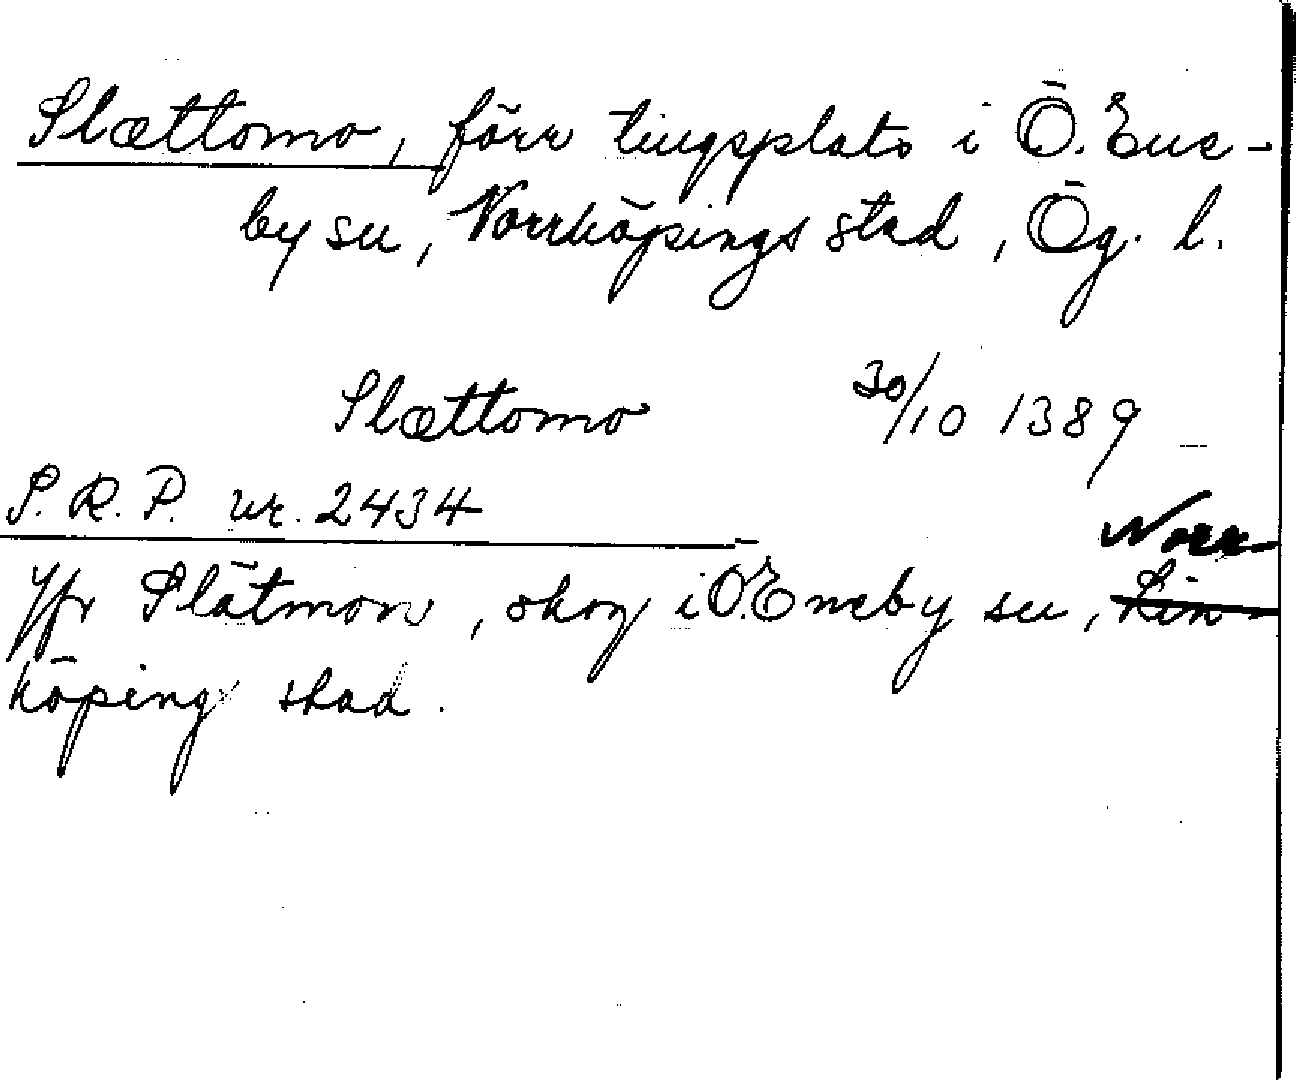 Slættomo, förr tingsplats i Ö. Ene-
by sn, Norrköpings stad, Ög. l.
Slættomo 30/10 1389
S.R.P. nr. 2434
Norr-
Jfr Slätmon, skog i Ö. Eneby sn, Lin-
köping stad.